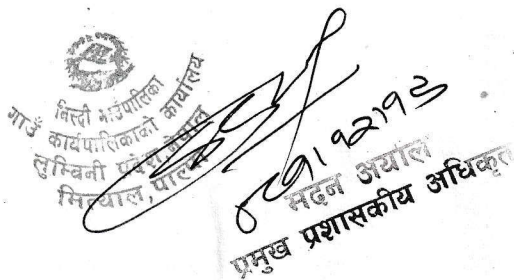 निस्दी गाउँपालिका
गाउँ कार्यपालिकाको कार्यालय
लुम्बिनी प्रदेश, नेपाल
मित्याल, पाल्पा
मदन अर्याल
प्रमुख प्रशासकीय अधिकृत